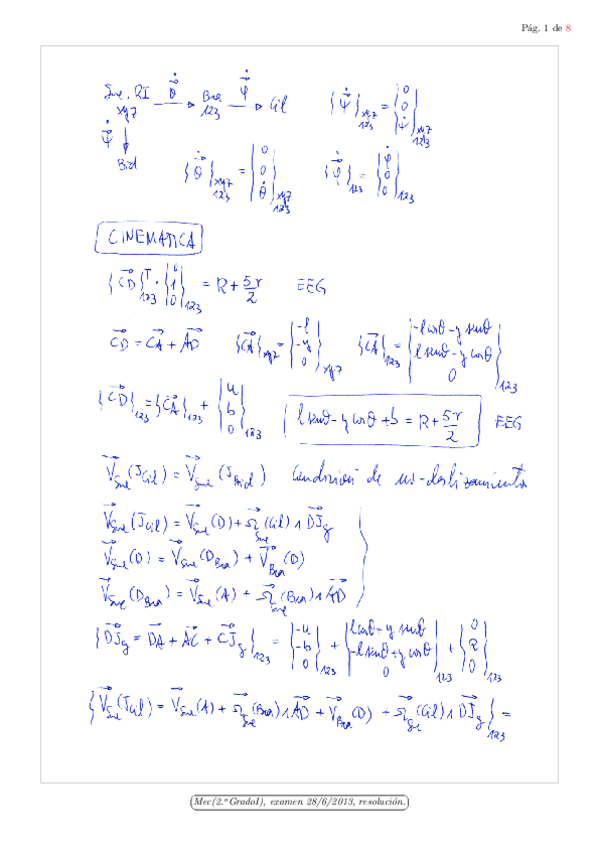 Pág. 1 de 8
Sue. RI → θ̇ → Bra → φ̇ → Cil
xyz 123
ψ̇ ↓
Bid
{ψ̇}xyz 123 = {0 0 ψ̇}xyz 123
{θ̇}xyz 123 = {0 0 θ̇}xyz 123
{φ̇}123 = {φ̇ 0 0}123
CINEMATICA
{CD}ᵀ123 · {0 1 0}123 = R + 5r/2 EEG
CD = CA + AD {CA}xyz = {-l -y 0}xyz {CA}123 = {-l cosθ - y sinθ l sinθ - y cosθ 0}123
{CD}123 = {CA}123 + {u b 0}123 l sinθ - y cosθ + b = R + 5r/2 EEG
V Sue (J Cil) = V Sue (J Bid) Condición de no-deslizamiento
V Sue (J Cil) = V Sue (D) + Ω Sue (Cil) ∧ DJg
V Sue (D) = V Sue (D Bra) + V Bra (D)
V Sue (D Bra) = V Sue (A) + Ω Sue (Bra) ∧ AD
{DJg = DA + AC + CJg}123 = {-u -b 0}123 + {l cosθ + y sinθ -l sinθ + y cosθ 0}123 + {0 R 0}123
{V Sue (J Cil) = V Sue (A) + Ω Sue (Bra) ∧ AD + V Bra (D) + Ω Sue (Cil) ∧ DJg}123 =
Mec(2.º GradoI), examen 28/6/2013, resolución.